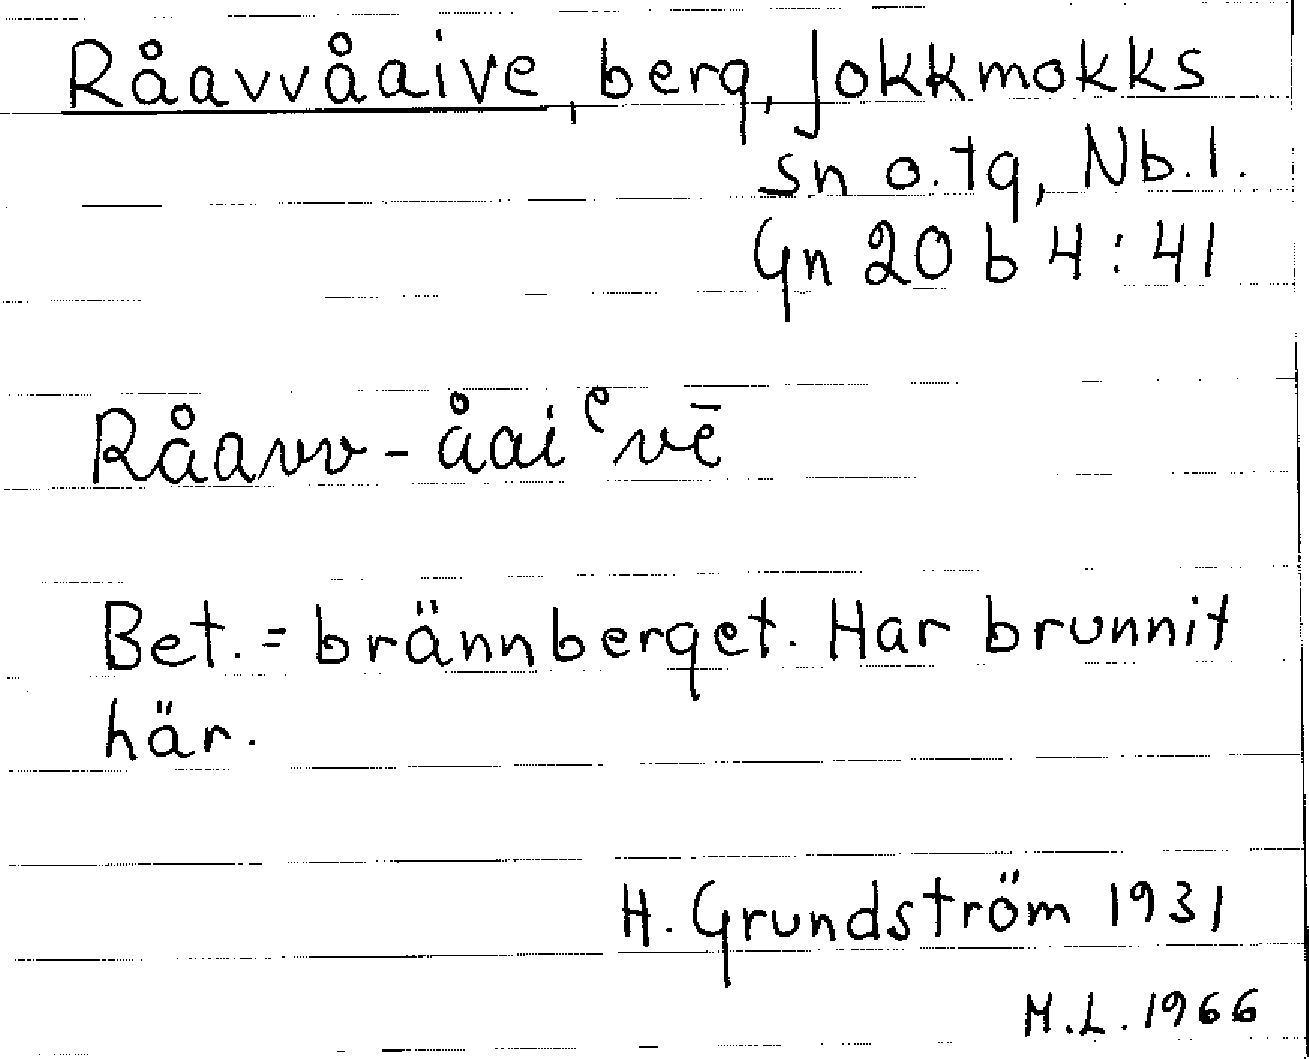 Råavvåaive, berg, Jokkmokks
sn o. tg, Nb.l.
Gn 20 b 4:41
Råavv-åaiᵉvē
Bet. = brännberget. Har brunnit
här.
H. Grundström 1931
M.L. 1966